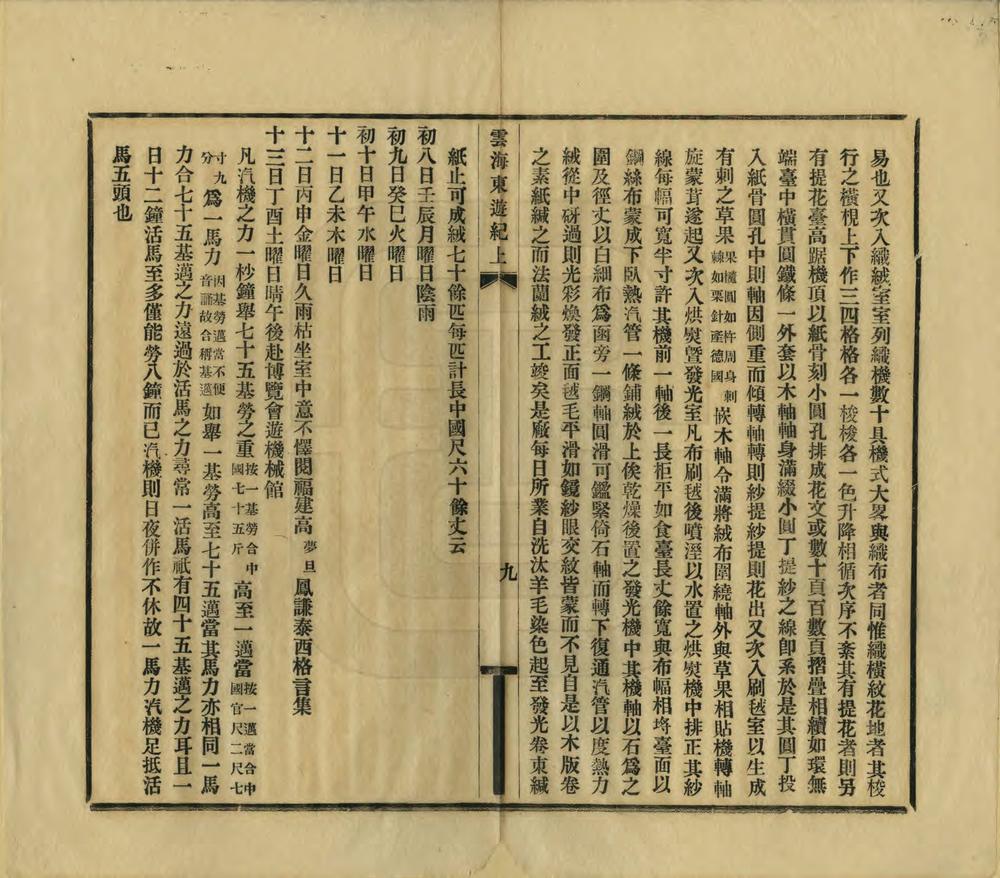 易也又次入織絨室室列織機數十具機式大畧與織布者同惟織橫紋花地者其梭
行之橫梘上下作三四格格各一梭梭各一色升降相循次序不紊其有提花者則另
有提花臺高踞機頂以紙骨刻小圓孔排成花文或數十頁百數頁摺疊相續如環無
端臺中橫貫圓鐵條一外套以木軸軸身滿綴小圓丁提紗之線卽系於是其圓丁投
入紙骨圓孔中則軸因側重而傾轉軸轉則紗提紗提則花出又次入刷毯室以生成
有刺之草果果橢圓如杵周身刺棘如栗針產德國嵌木軸令滿將絨布圍繞軸外與草果相貼機轉軸
旋蒙茸遂起又次入烘熨曁發光室凡布刷毯後噴溼以水置之烘熨機中排正其紗
線每幅可寬半寸許其機前一軸後一長拒平如食臺長丈餘寬與布幅相埒臺面以
銅絲布蒙成下臥熱汽管一條鋪絨於上俟乾燥後置之發光機中其機軸以石爲之
圍及徑丈以白細布爲函旁一鋼軸圓滑可鑑緊倚石軸而轉下復通汽管以度熱力
絨從中硏過則光彩煥發正面毯毛平滑如鏡紗眼交紋皆蒙而不見自是以木版卷
之素紙緘之而法蘭絨之工竣矣是廠每日所業自洗汰羊毛染色起至發光卷束緘
雲海東遊紀上
九
紙止可成絨七十餘匹每匹計長中國尺六十餘丈云
初八日壬辰月曜日陰雨
初九日癸巳火曜日
初十日甲午水曜日
十一日乙未木曜日
十二日丙申金曜日久雨枯坐室中意不懌閱福建高夢旦鳳謙泰西格言集
十三日丁酉土曜日晴午後赴博覽會遊機械館
凡汽機之力一秒鐘舉七十五基勞之重按一基勞合中國七十五斤高至一邁當按一邁當合中國官尺二尺七
寸九分爲一馬力因基勞邁當不便音誦故合稱基邁如舉一基勞高至七十五邁當其馬力亦相同一馬
力合七十五基邁之力遠過於活馬之力尋常一活馬祇有四十五基邁之力耳且一
日十二鐘活馬至多僅能勞八鐘而已汽機則日夜併作不休故一馬力汽機足抵活
馬五頭也